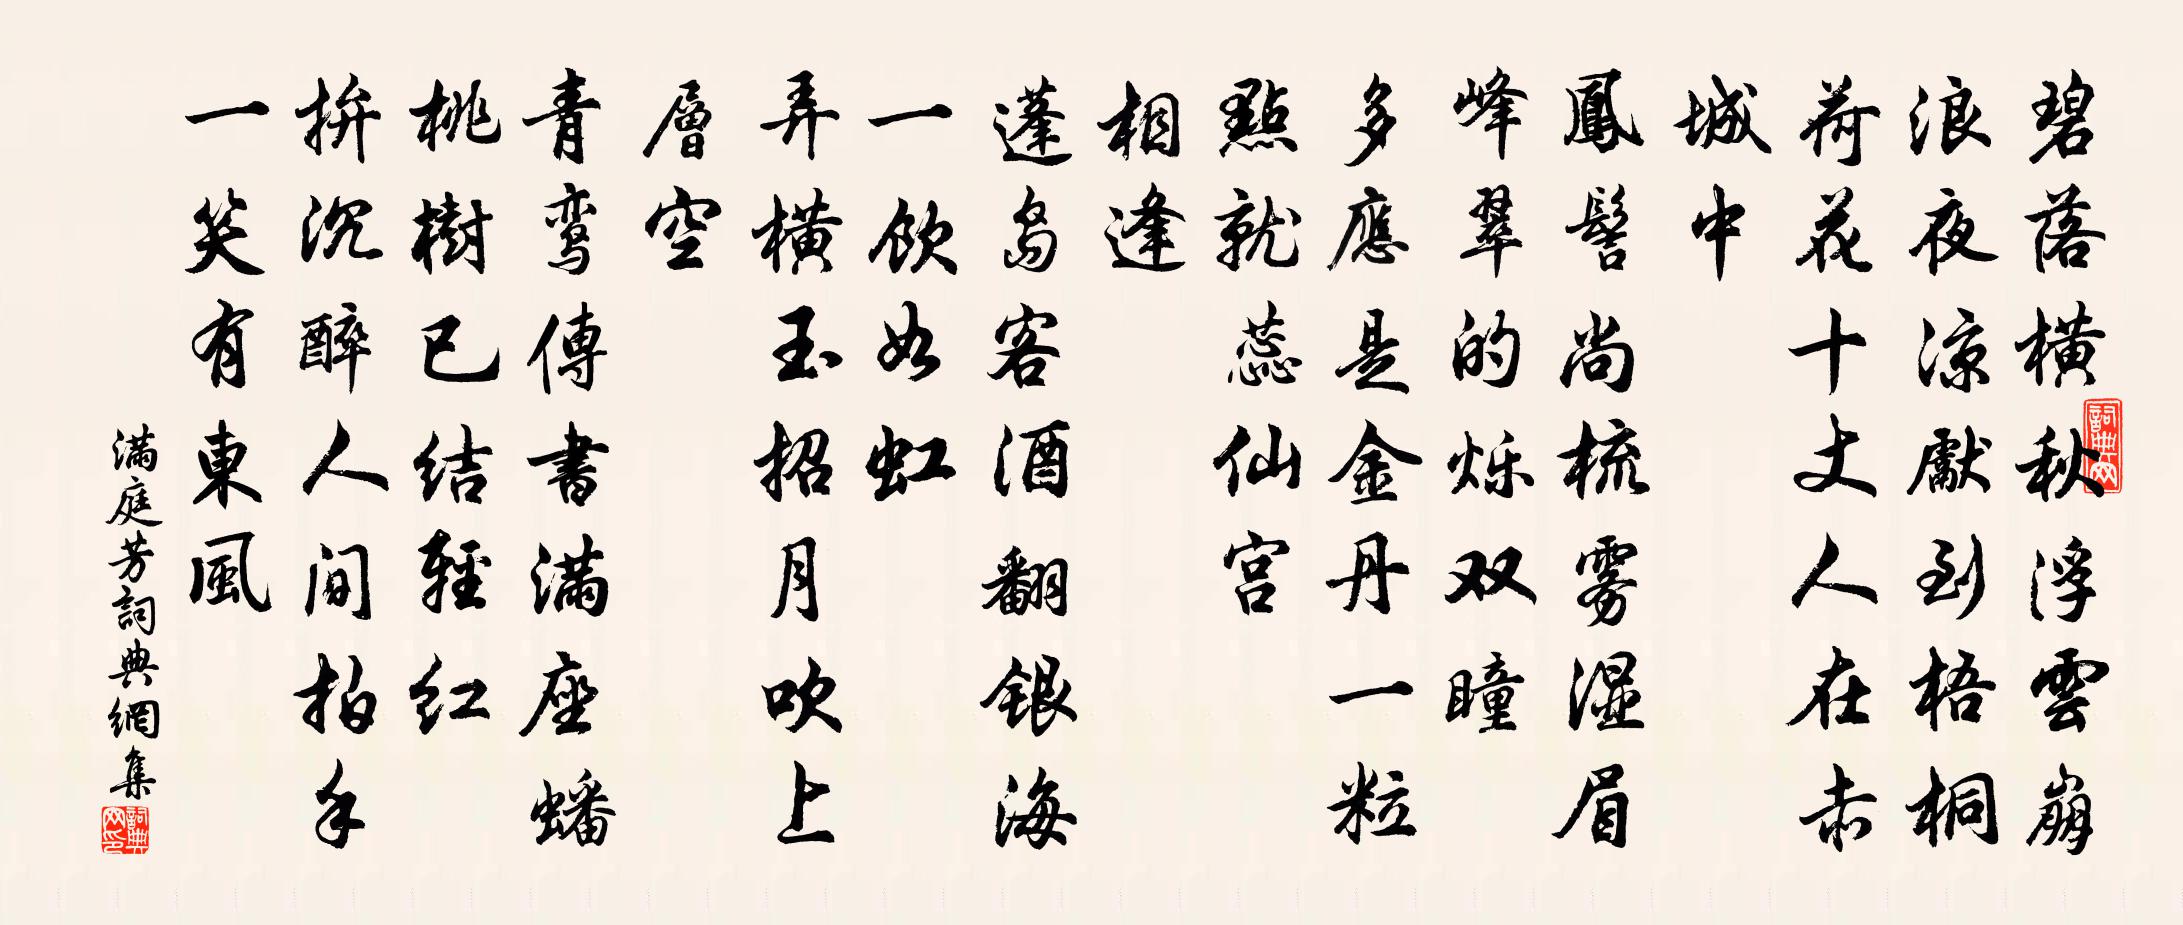 碧落橫秋浮雲崩
浪夜涼獻到梧桐
荷花十丈人在赤
城中
鳳髻尚梳雾湿眉
峰翠的烁双瞳
多應是金丹一粒
點就蕊仙宫
相逢
蓬島客酒翻銀海
一飲如虹
弄橫玉招月吹上
層空
青鸾傳書满座蟠
桃樹已结輕红
拚沉醉人间拍手
一笑有東風
满庭芳詞典網集
詞典网
詞典